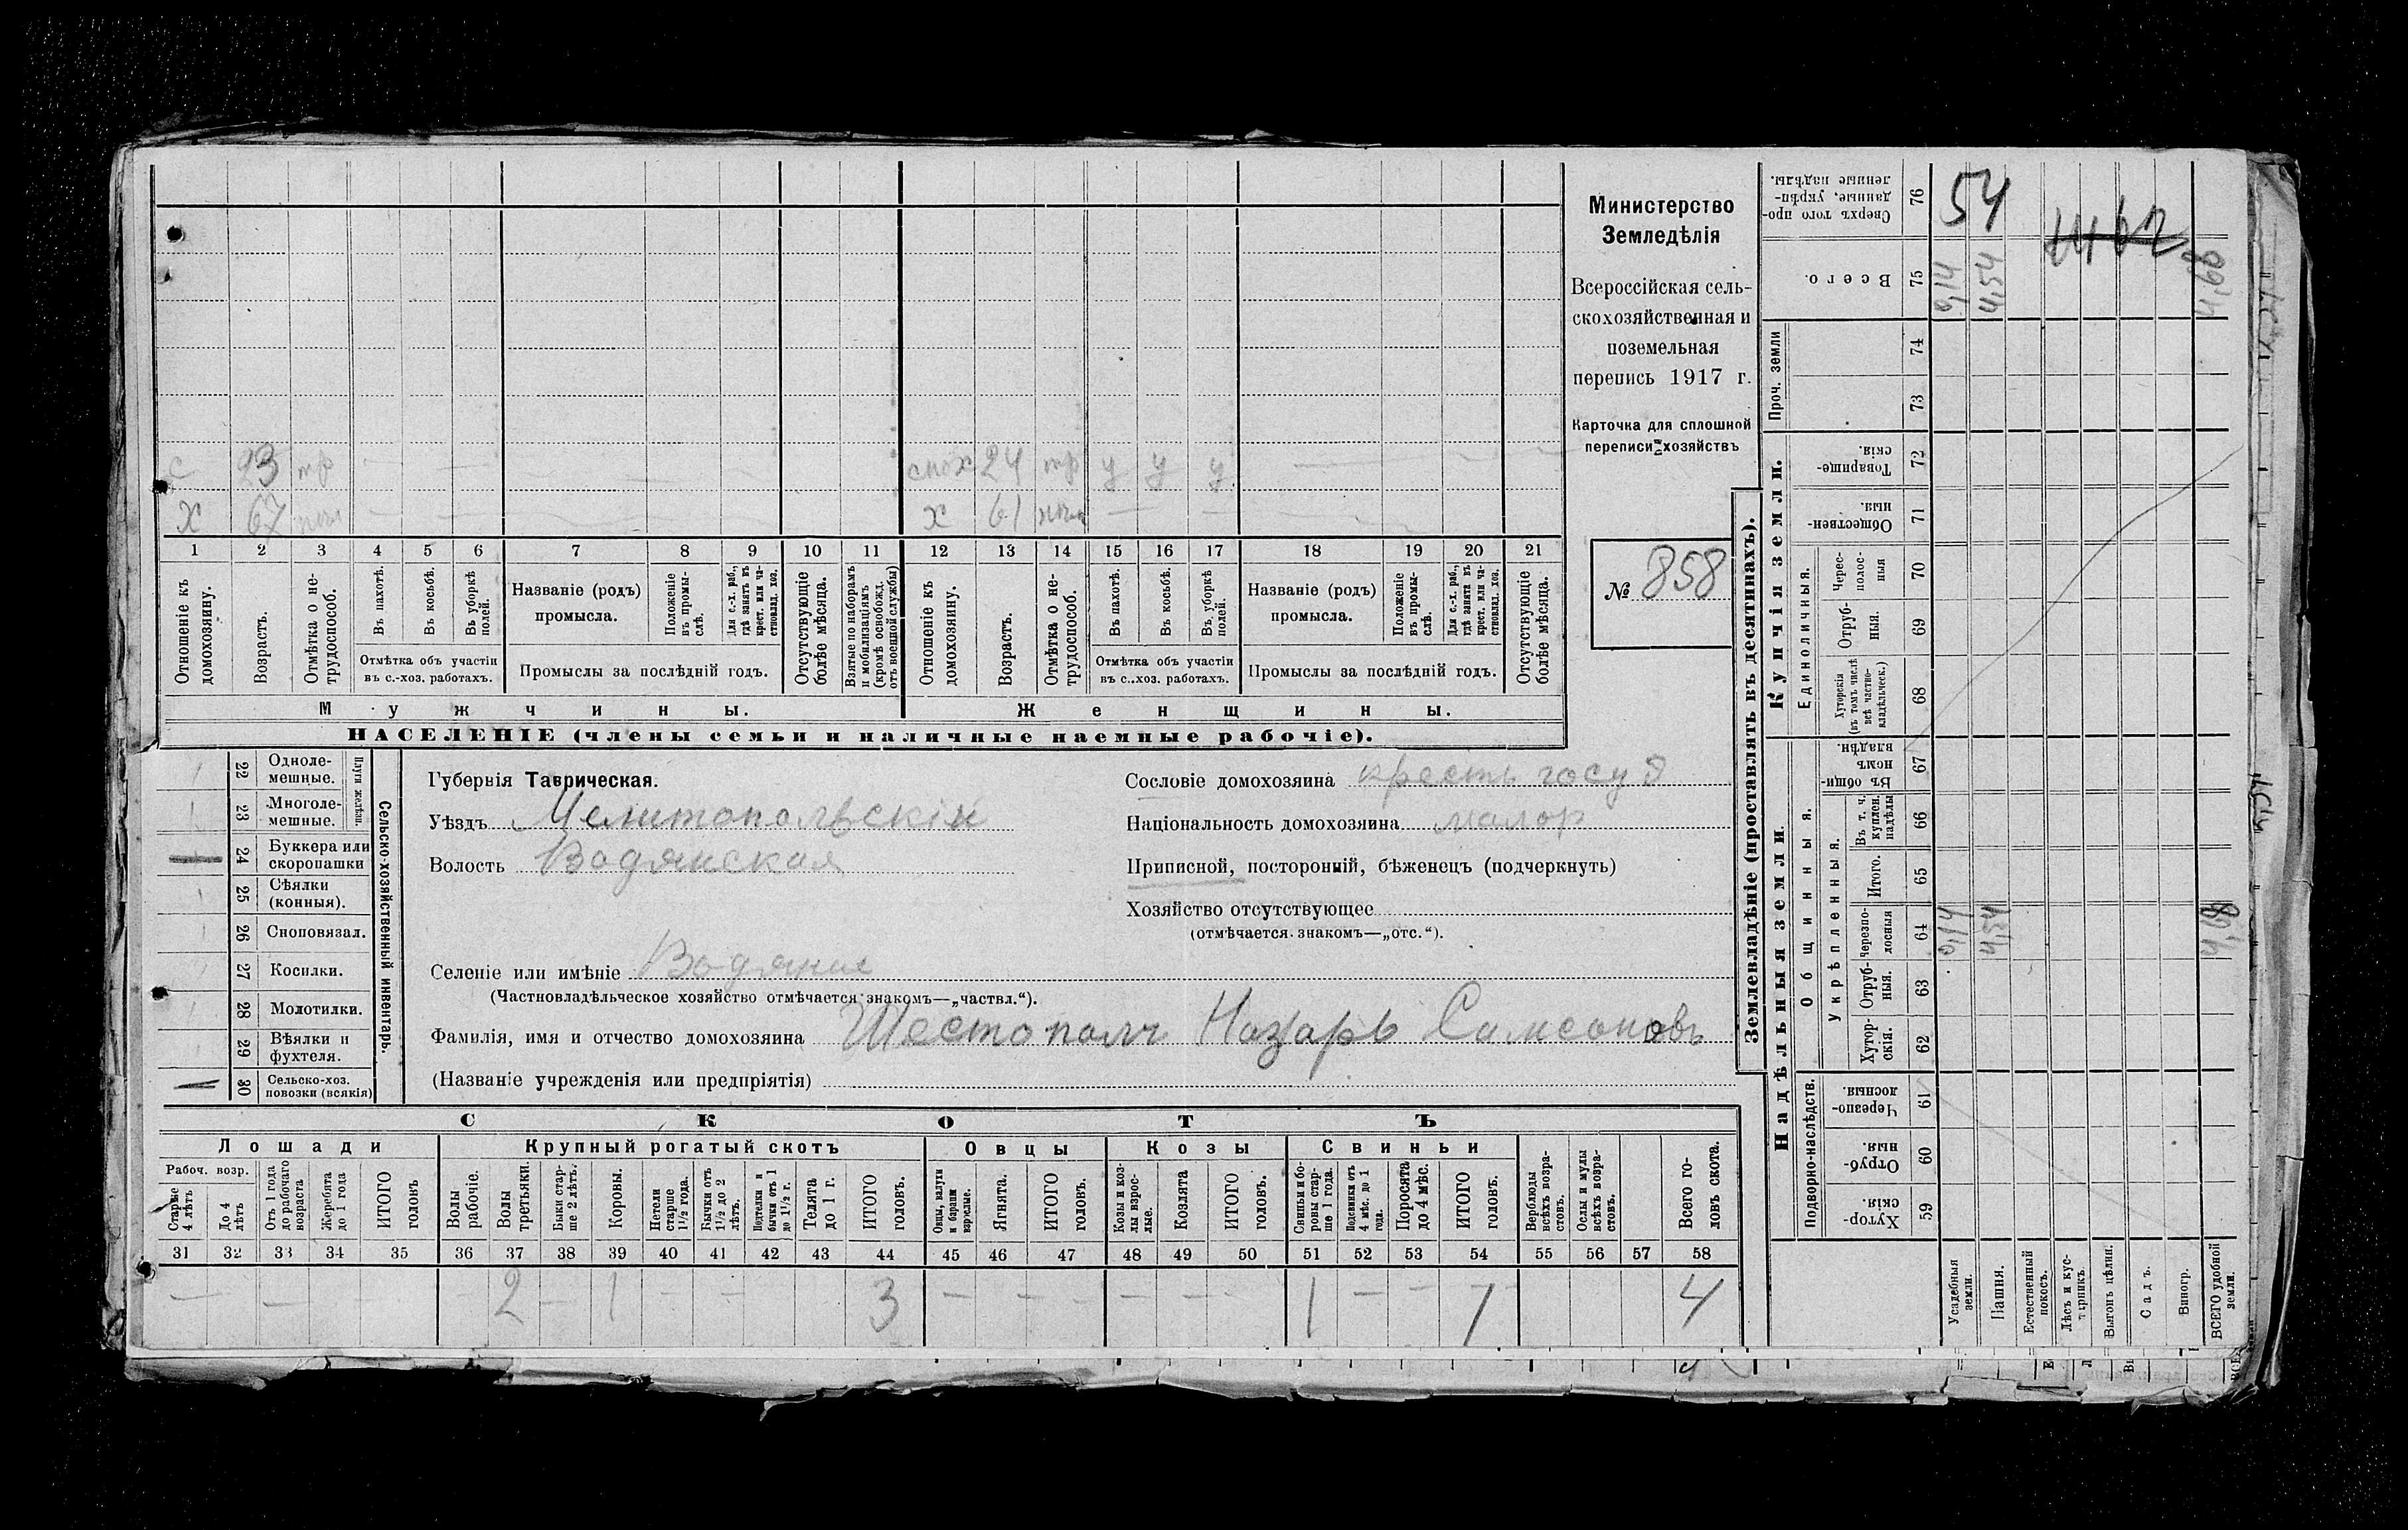 с 23 тр — — — — спох 24 тр у у у — — —
х 67 — — — — х 61 — — —
1 2 3 4 5 6 7 8 9 10 11 12 13 14 15 16 17 18 19 20 21
Отношеніе къ домохозяину.
Возрастъ.
Отмѣтка о не-
трудоспособ.
Въ пахотѣ.
Въ косьбѣ.
Въ уборкѣ
полей.
Отмѣтка объ участіи
въ с.-хоз. работахъ.
Названіе (родъ)
промысла.
Положеніе
въ промы-
слѣ.
Для с.-х. раб.,
гдѣ занятъ въ
крест. или ча-
стновлад. хоз.
Промыслы за послѣдній годъ.
Отсутствующіе
болѣе мѣсяца.
Взятые по наборамъ
и мобилизаціямъ
(кромѣ освобожд.
отъ военной службы)
Отношеніе къ
домохозяину.
Возрастъ.
Отмѣтка о не-
трудоспособ.
Въ пахотѣ.
Въ косьбѣ.
Въ уборкѣ
полей.
Отмѣтка объ участіи
въ с.-хоз. работахъ.
Названіе (родъ)
промысла.
Положеніе
въ промы-
слѣ.
Для с.-х. раб.,
гдѣ занятъ въ
крест. или ча-
стновлад. хоз.
Промыслы за послѣдній годъ.
Отсутствующіе
болѣе мѣсяца.
Мужчины. Женщины.
НАСЕЛЕНІЕ (члены семьи и наличные наемные рабочіе).
Министерство
Земледѣлія
Всероссійская сель-
скохозяйственная и
поземельная
перепись 1917 г.
Карточка для сплошной
переписи хозяйствъ
№ 858
22 Одноле-
мешные.
23 Многоле-
мешные.
Плуги желѣзн.
24 Буккера или
скоропашки
25 Сѣялки
(конныя).
26 Сноповязал.
27 Косилки.
28 Молотилки.
29 Вѣялки и
фухтеля.
30 Сельско-хоз.
повозки (всякія)
Сельско-хозяйственный инвентарь.
Губернія Таврическая.
Уѣздъ Мелитопольскій
Волость Водянская
Селеніе или имѣніе Водяное
(Частновладѣльческое хозяйство отмѣчается знакомъ—„частвл.“).
Фамилія, имя и отчество домохозяина Шестопалъ Назаръ Самсоновъ
(Названіе учрежденія или предпріятія)
Сословіе домохозяина кресть госуд
Національность домохозяина малор
Приписной, посторонній, бѣженецъ (подчеркнуть)
Хозяйство отсутствующее
(отмѣчается знакомъ—„отс.“).
СКОТЪ
Лошади Крупный рогатый скотъ Овцы Козы Свиньи
Рабоч. возр.
Старше
4 лѣтъ
До 4
лѣтъ
Отъ 1 года
до рабочаго
возраста
Жеребята
до 1 года
ИТОГО
головъ
Волы
рабочіе.
Волы
третьяки.
Быки стар-
ше 2 лѣтъ.
Коровы.
Нетели
старше
1½ года.
Бычки отъ
1½ до 2
лѣтъ.
Подтелки и
бычки отъ 1
до 1½ г.
Телята
до 1 г.
ИТОГО
головъ.
Овцы, валухи
и бараны
взрослые.
Ягнята.
ИТОГО
головъ.
Козы и коз-
лы взрос-
лые.
Козлята
ИТОГО
головъ.
Свиньи и бо-
ровы стар-
ше 1 года.
Подсвинки отъ
4 мѣс. до 1
года.
Поросята
до 4 мѣс.
ИТОГО
головъ.
Верблюды
всѣхъ возра-
стовъ.
Ослы и мулы
всѣхъ возра-
стовъ.
Всего го-
ловъ скота.
31 32 33 34 35 36 37 38 39 40 41 42 43 44 45 46 47 48 49 50 51 52 53 54 55 56 57 58
— — — 2 — 1 — — 3 — — — — — — 1 — — 1 4
Землевладѣніе (проставлять въ десятинахъ).
Купчія земли.
Надѣльныя земли.
Сверхъ того про-
данные, укрѣп-
ленные надѣлы.
76
54
Всего.
75
0,14
4,54
4,68
Проч. земли
74
73
Товарище-
скія.
72
Обществен-
ныя.
71
Единоличныя.
Черес-
полос-
ныя
70
Отруб-
ныя.
69
Хуторскія
(въ томъ числѣ
всѣ частно-
владѣльческ.)
68
Общинныя.
Въ общи-
номъ
владѣн.
67
Укрѣпленныя.
Въ т. ч.
куплен.
надѣлы
66
Итого.
65
Черезпо-
лосныя
64
0,14
4,54
4,68
Отруб-
ныя.
63
Хутор-
скія.
62
Подворно-наслѣдств.
Черезпо-
лосныя.
61
Отруб-
ныя.
60
Хутор-
скія.
59
Усадебныя
земли.
Пашня.
Естественный
покосъ.
Лѣсъ и кус-
тарникъ.
Выгонъ цѣлин.
Садъ.
Виногр.
ВСЕГО удобной
земли.